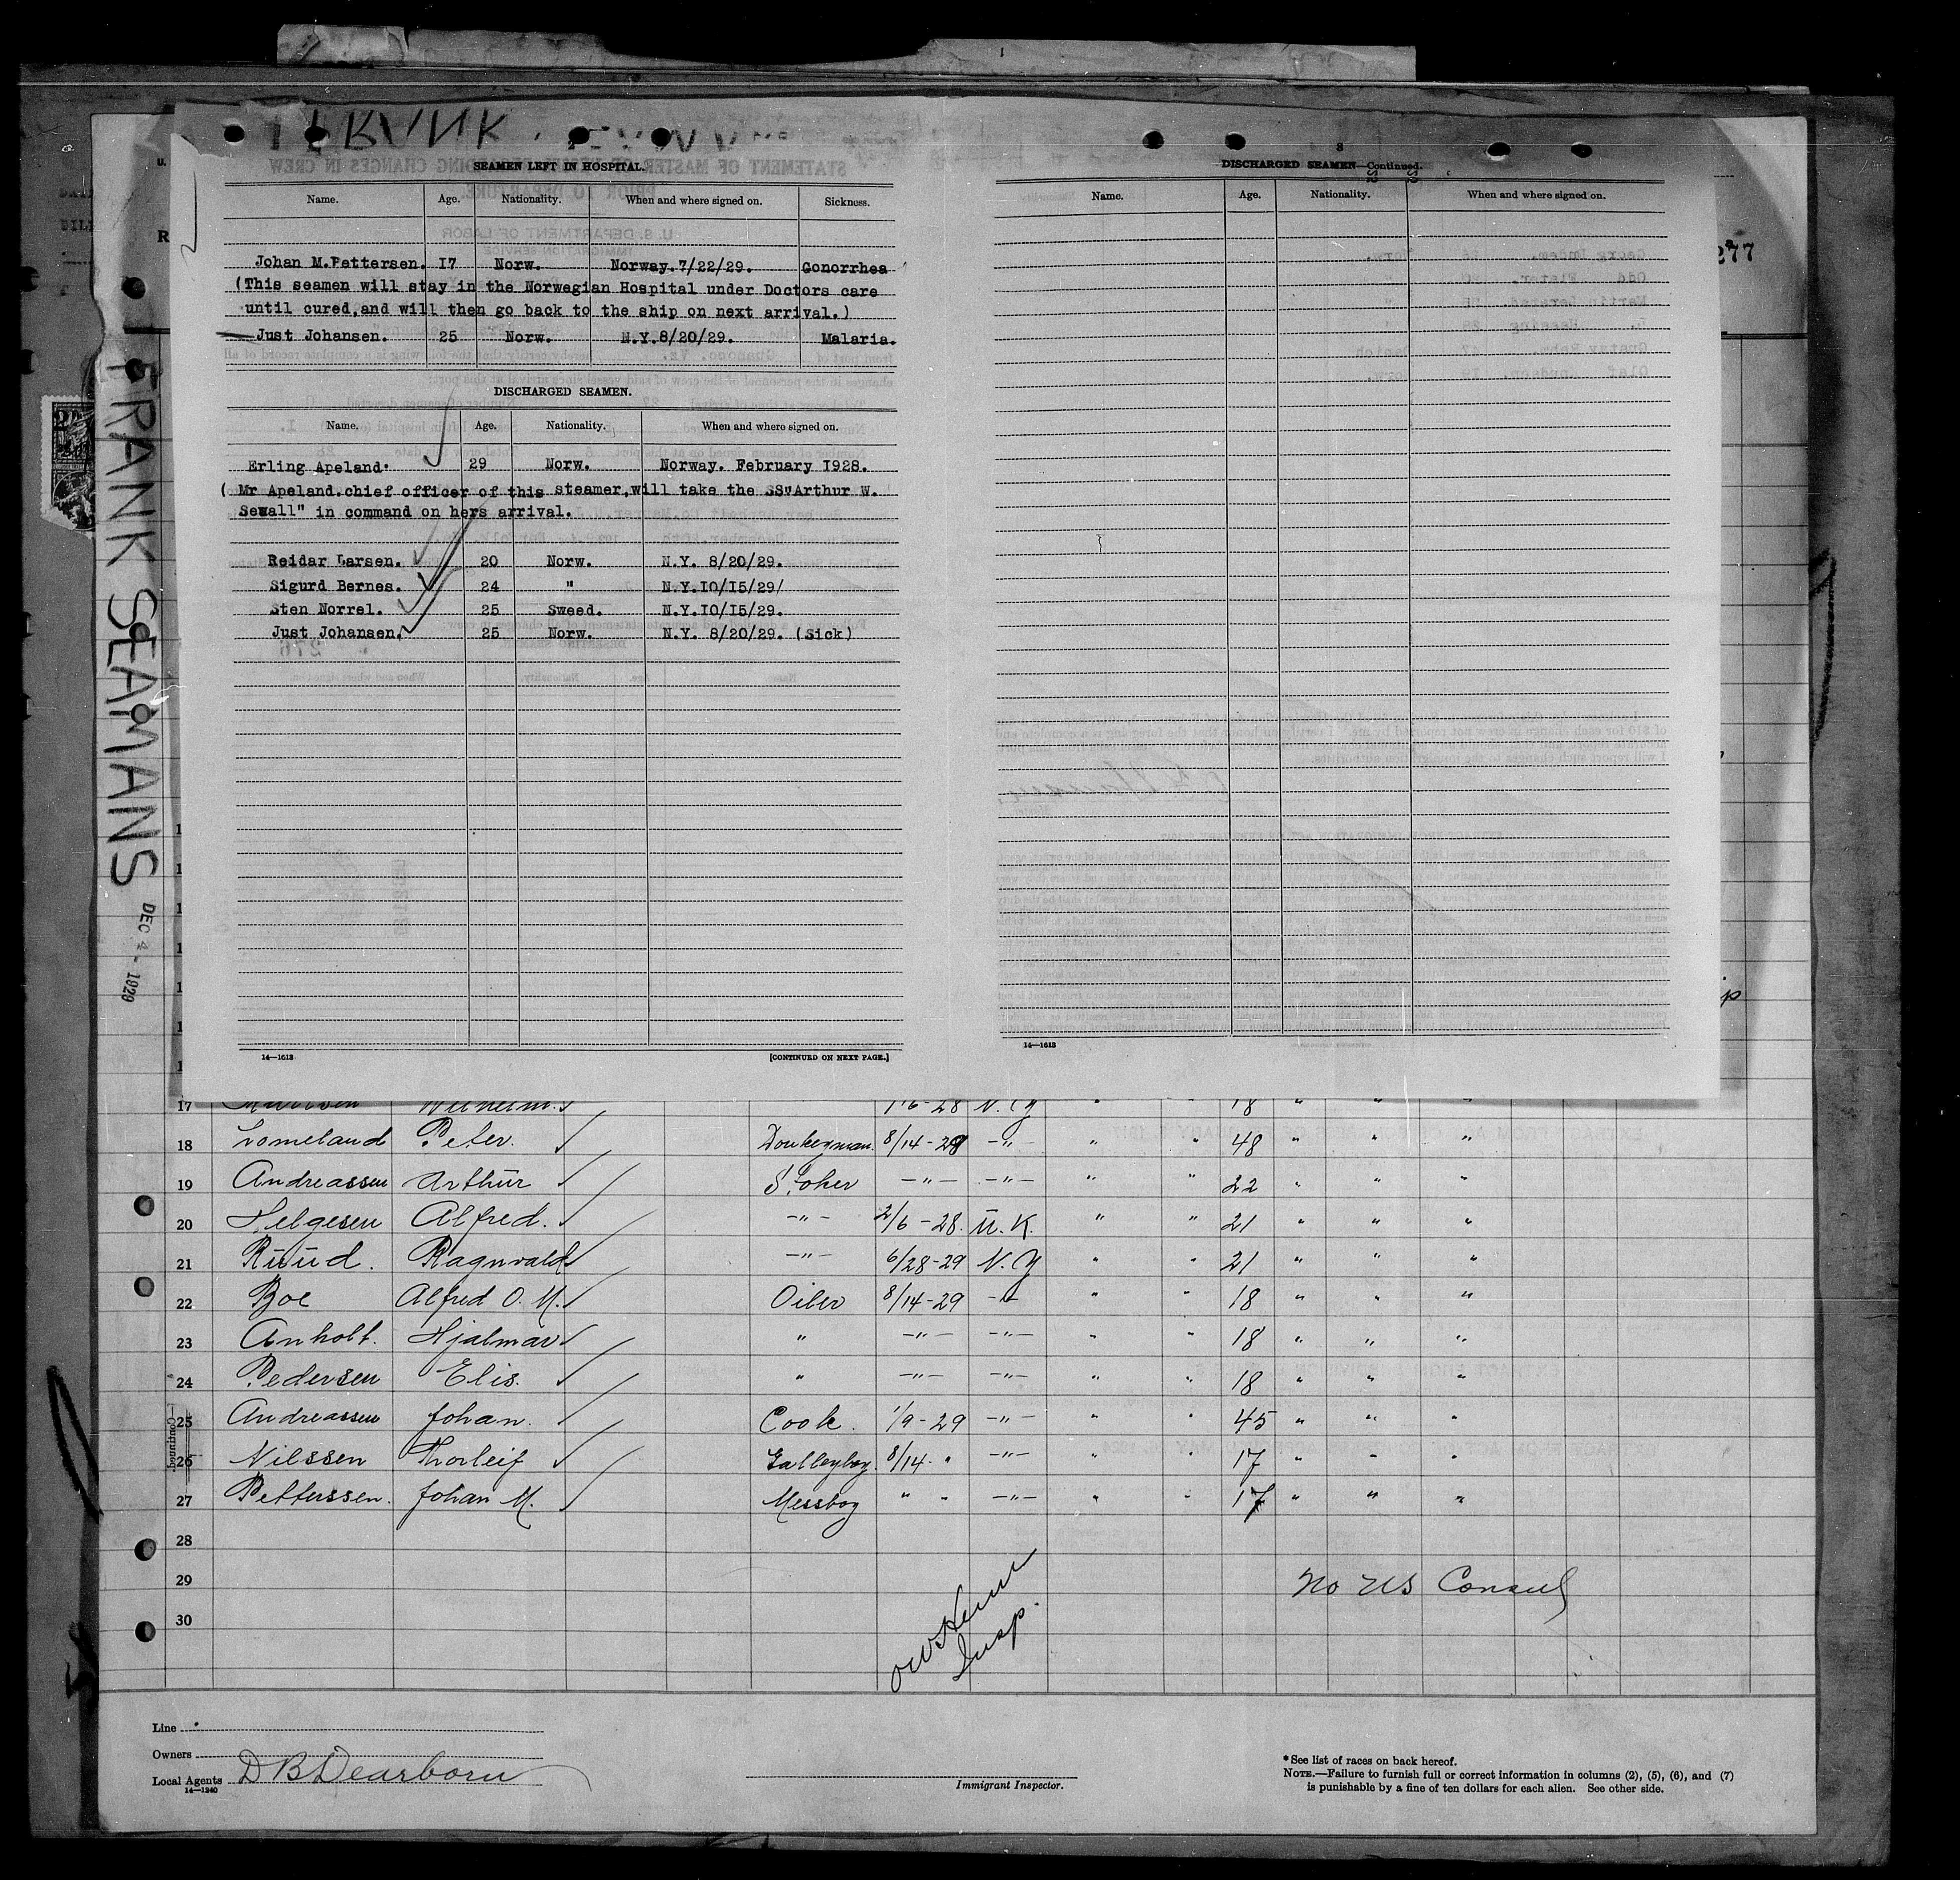 SEAMEN LEFT IN HOSPITAL.
Name. Age. Nationality. When and where signed on. Sickness.
Johan M.Pettersen. 17 Norw. Norway.7/22/29. Gonorrhea
(This seamen will stay in the Norwegian Hospital under Doctors care
until cured,and will then go back to the ship on next arrival.)
Just Johansen. 25 Norw. N.Y.8/20/29. Malaria.
DISCHARGED SEAMEN.
Name. Age. Nationality. When and where signed on.
Erling Apeland. 29 Norw. Norway. February 1928.
( Mr Apeland.chief officer of this steamer,will take the SS"Arthur W.
Sewall" in command on hers arrival.
Reidar Larsen. 20 Norw. N.Y. 8/20/29.
Sigurd Bernes. 24 " N.Y.10/15/29/
Sten Norrel. 25 Sweed. N.Y.10/15/29.
Just Johansen. 25 Norw. N.Y. 8/20/29. (Sick)
14—1613 [CONTINUED ON NEXT PAGE.]
3
DISCHARGED SEAMEN—Continued.
Name. Age. Nationality. When and where signed on.
14—1613
277
FRANK SEAMANS
DEC 4 - 1929
17 Wilhelm. 1/6-28 N.Y " 18 " " "
18 Lomeland Peter. Donkeyman. 8/14-29 -"- " " 48 " " "
19 Andreassen Arthur Stoker -"- -"- " " 22 " " "
20 Helgesen Alfred. -"- 2/6-28. U.K. " " 21 " " "
21 Ruud. Ragnvald -"- 6/28-29 N.Y " " 21 " " "
22 Boe Alfred O. M. Oiler 8/14-29 -"- " " 18 " " "
23 Anholt. Hjalmar " -"- -"- " " 18 " " "
24 Pedersen Elis. " -"- -"- " " 18 " " "
25 Andreassen Johan. Cook. 1/9-29 -"- " " 45 " " "
26 Nilssen Thorleif Galleyboy. 8/14- " -"- " " 17 " " "
27 Petterssen. Johan M. Messboy " " -"- " " 17 " " "
28
29
30
No US Consul
Insp.
Line
Owners
Local Agents D B Dearborn
14—1240
Immigrant Inspector.
*See list of races on back hereof.
NOTE.—Failure to furnish full or correct information in columns (2), (5), (6), and (7)
is punishable by a fine of ten dollars for each alien. See other side.